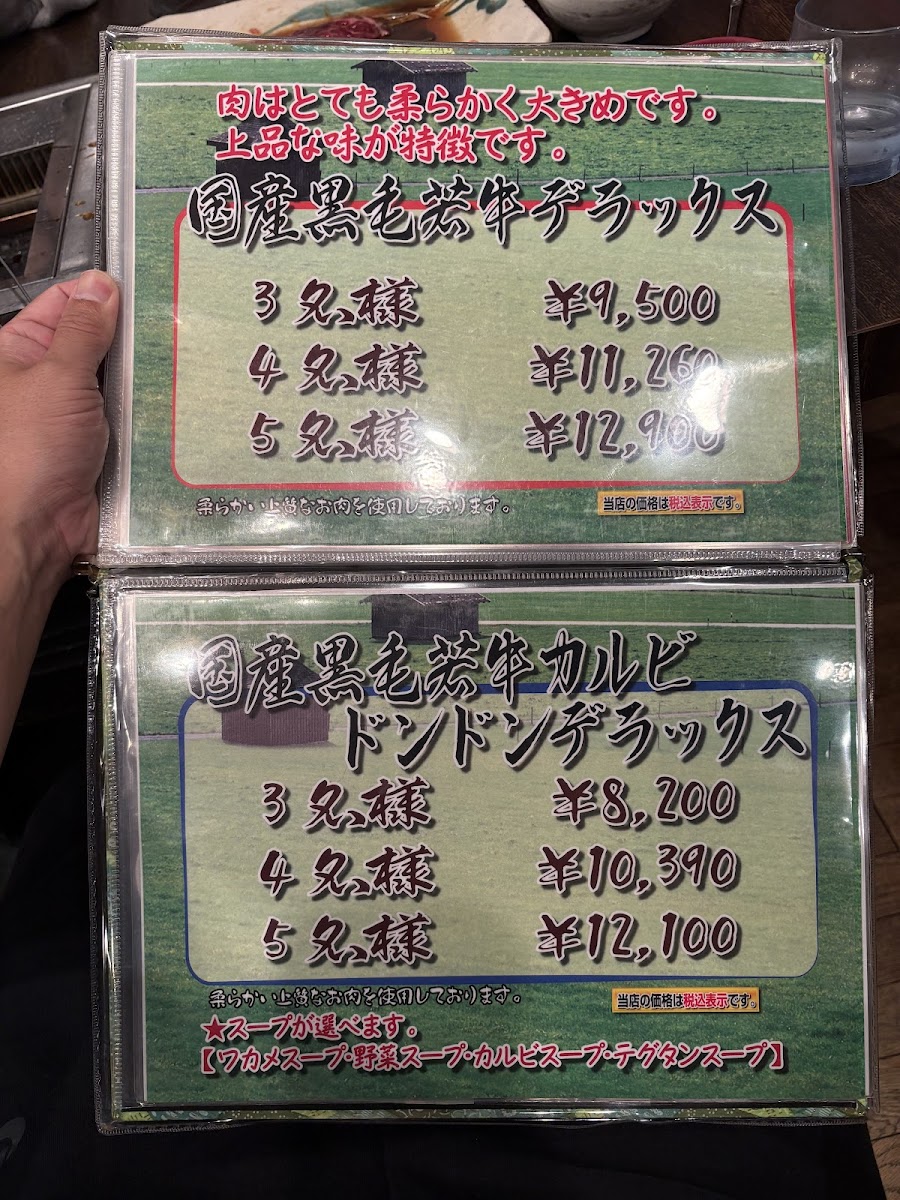 肉はとても柔らかく大きめです。
上品な味が特徴です。
国産黒毛若牛デラックス
3名様 ¥9,500
4名様 ¥11,260
5名様 ¥12,900
柔らかい上質なお肉を使用しております。
当店の価格は税込表示です。
国産黒毛若牛カルビ
ドンドンデラックス
3名様 ¥8,200
4名様 ¥10,390
5名様 ¥12,100
柔らかい上質なお肉を使用しております。
当店の価格は税込表示です。
★スープが選べます。
【ワカメスープ・野菜スープ・カルビスープ・テグタンスープ】